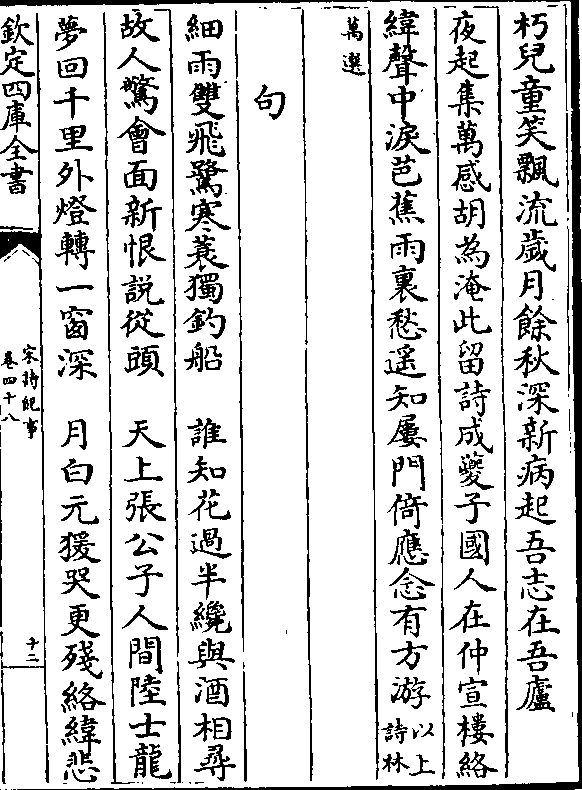 朽兒童笑飄流歲月餘秋深新病起吾志在吾廬
夜起集萬感胡為淹此留詩成夔子國人在仲宣樓絡
緯聲中淚芭蕉雨裏愁遥知屢門倚應念有方游以上詩林
萬選
句
細雨雙飛鷺寒蓑獨釣船　誰知花過半纔與酒相尋
故人驚會面新恨説從頭　天上張公子人間陸士龍
夢回千里外燈轉一窗深　月白元猨哭更殘絡緯悲
欽定四庫全書
宋詩紀事
卷四十八
十二